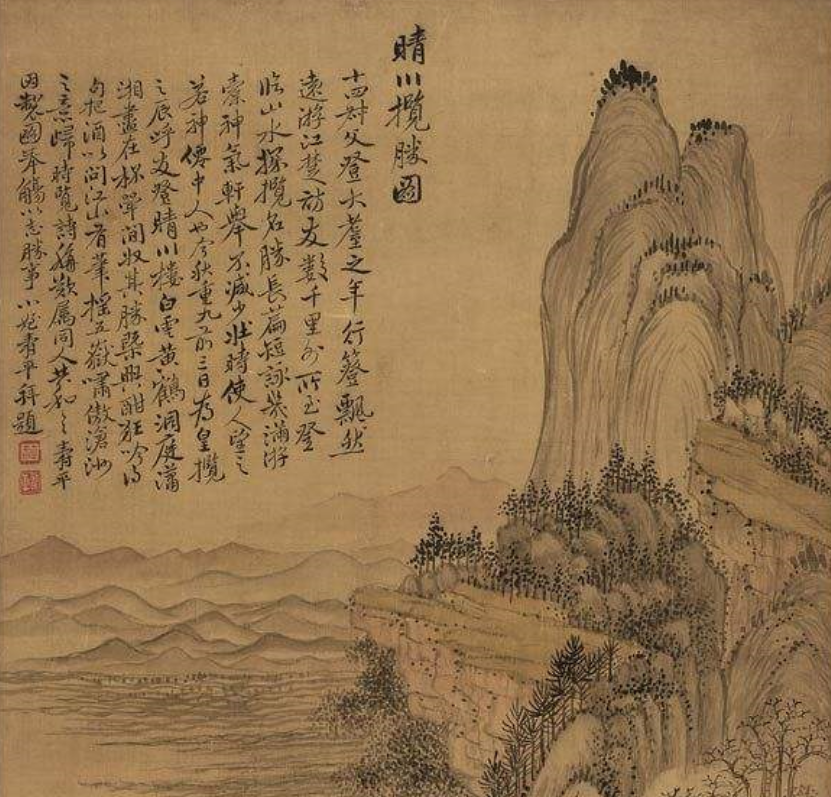 晴川攬勝圖
十四叔父登大耋之年行簦飄然
遠游江楚訪友數千里外所至登
臨山水探攬名勝長篇短詠裝滿游
橐神氣軒舉不減少壯時使人望之
若神僊中人也今秋重九前三日為皇攬
之辰呼友登晴川樓白雲黃鶴洞庭瀟
湘盡在襟帶間收其勝槩興酣狂吟有
句把酒以問江山看筆搖五嶽嘯傲滄洲
之意歸時覽詩稱歎属同人共和之壽平
因製圖奉觴以志勝事小姪壽平拜題